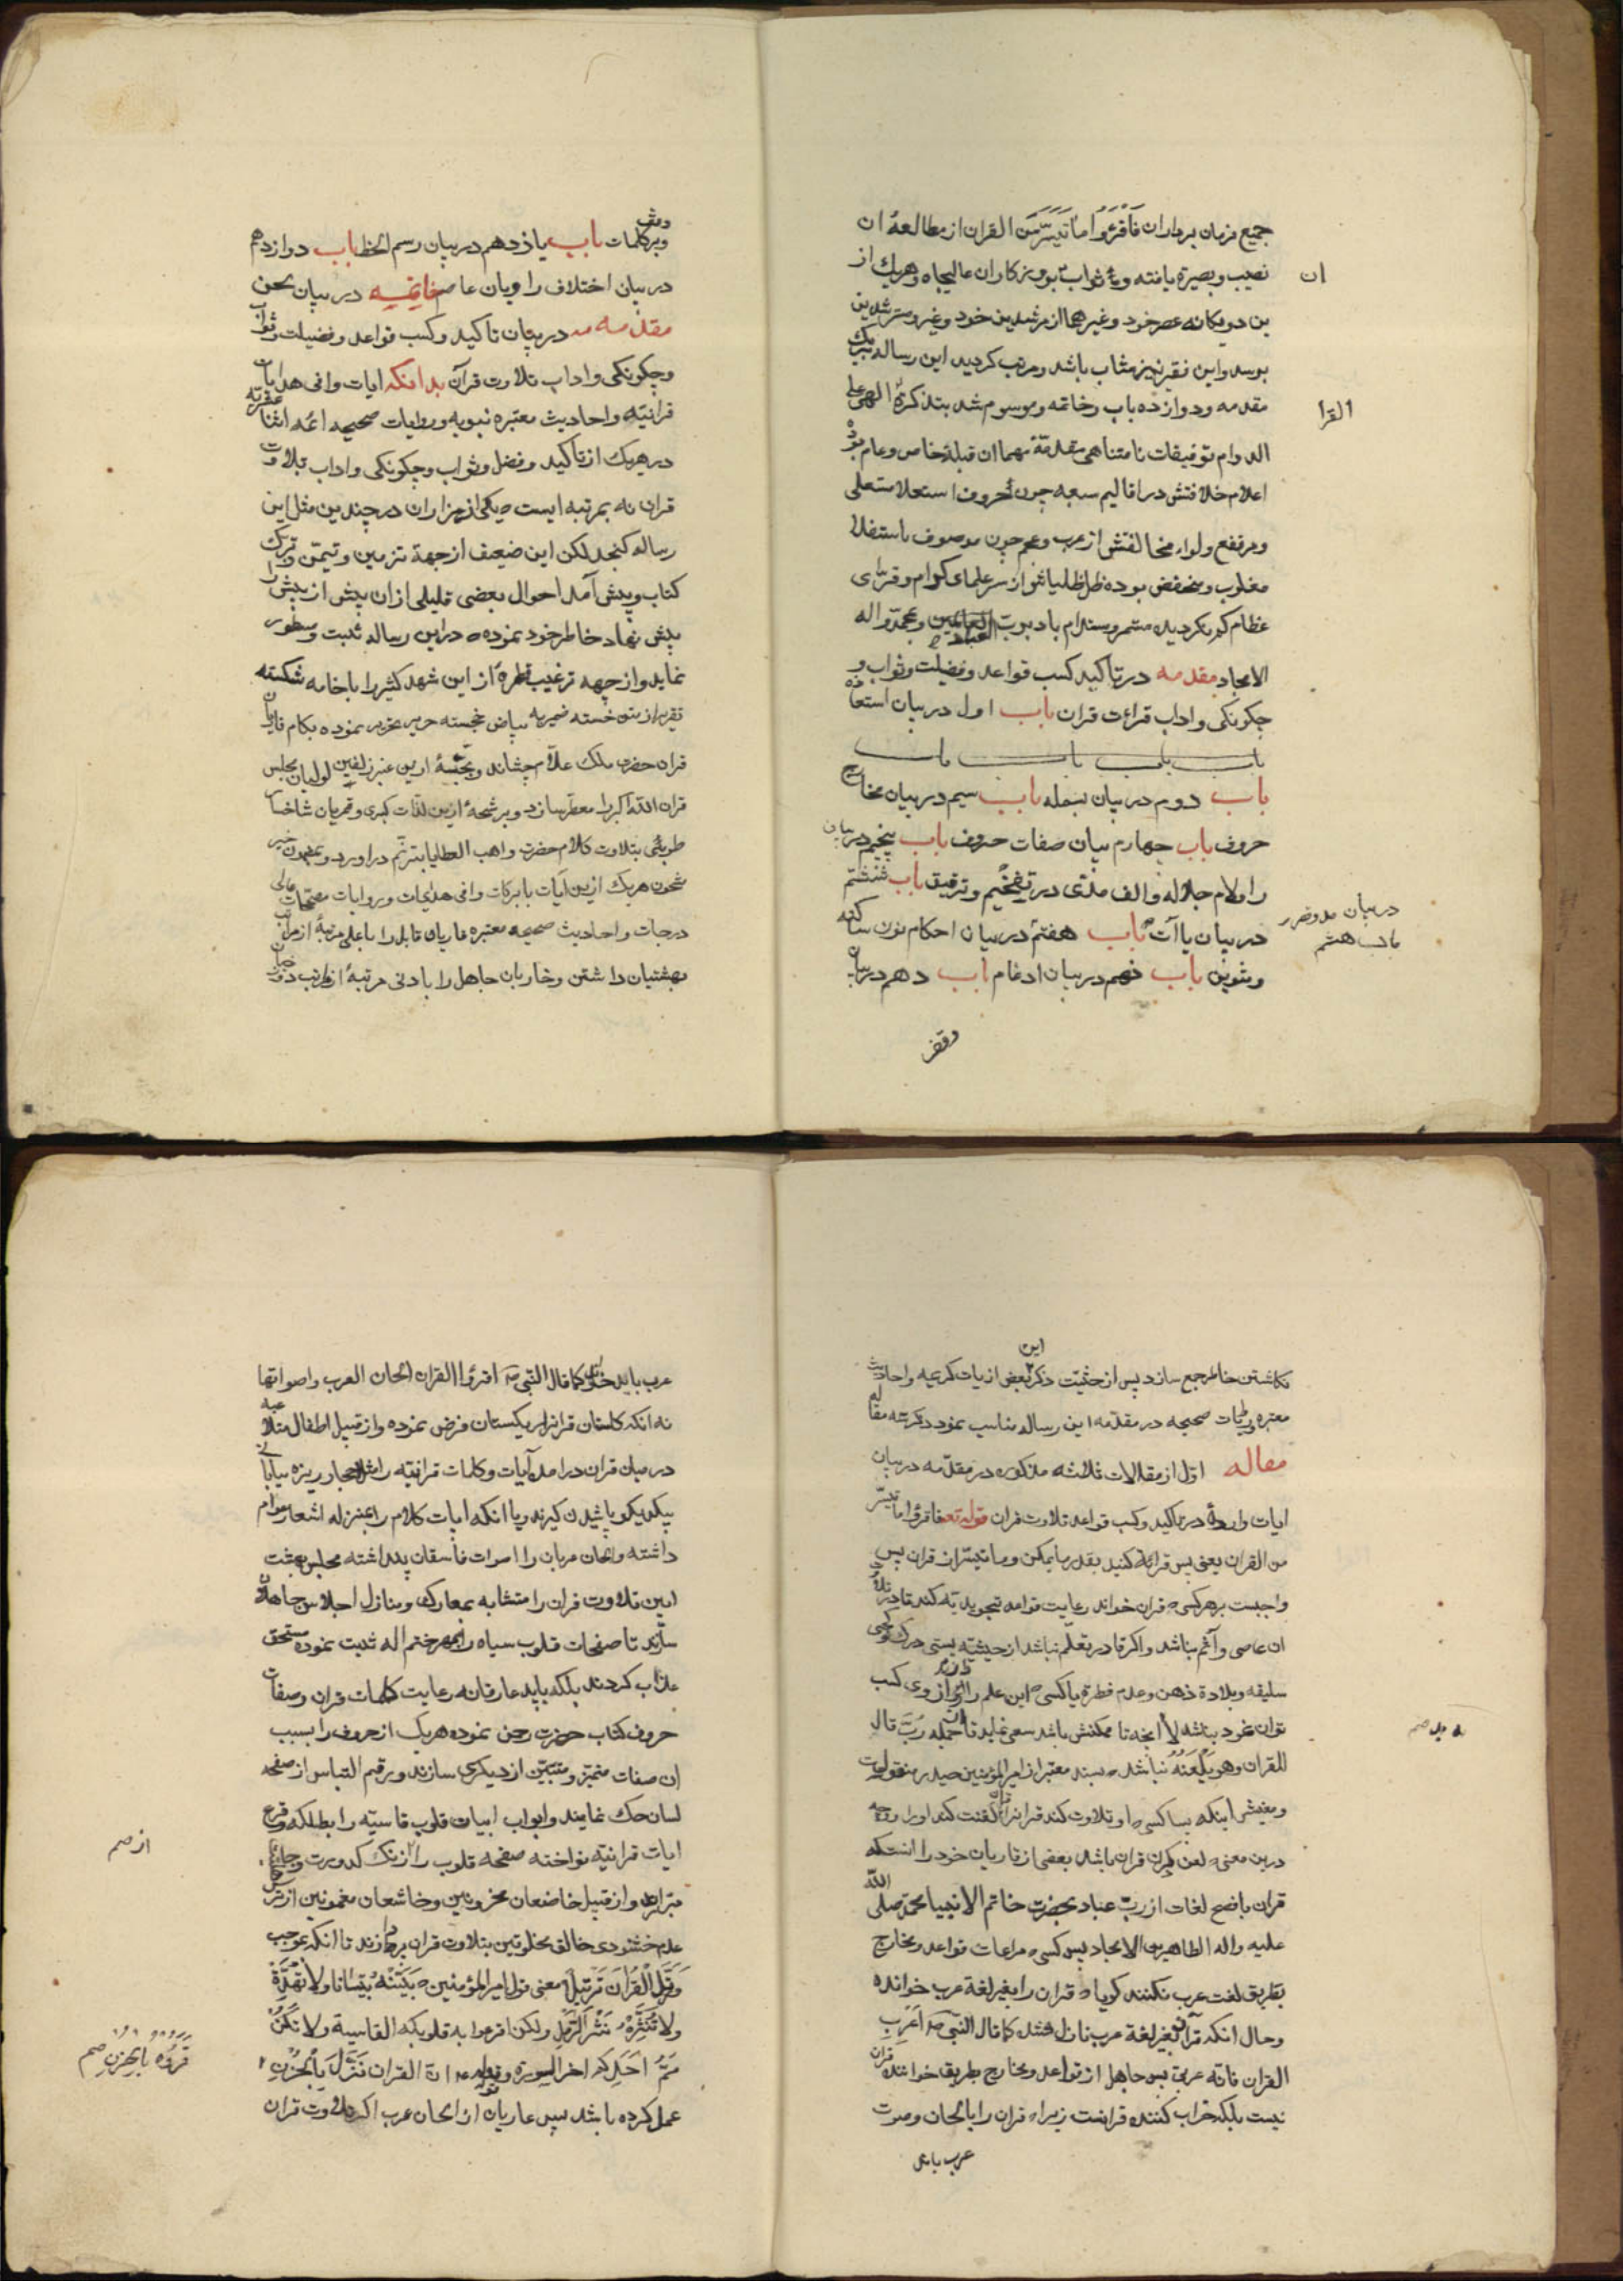 جمیع فرمان برداران فَاقْرَؤُا مَا تَیَسَّرَ مِنَ القران از مطالعهٔ ان
نصیب و بصیرة یافته و ثواب بوویزکاران عالیجاه و هریک از
ان
بن دو یکانه عصر خود و غیرهما از مرشدین خود و غیر و مسترشدین
برسد و این فقیر نیز مثاب باشد و مرتب کردید این رساله بیک
مقدمه و دوازده باب و خاتمه و موسوم شد بتذکرة الهی علی
القرا
الدوام توفیقات نامتناهی مقدمة مهما ان قبلهٔ خاص و عام بوده
اعلام خلافتش در اقالیم سبعه چون حروف استعلا مستعلی
و مرتفع و لواء مخالفتش از عرب و عجم چون موصوف باستفال
مغلوب و منخفض بوده ظل ظلیلش از سر علمای کرام و قرای
عظام کم نکردیده مستمر و مستدام باد برب العباد و محمد و اله
الامجاد مقدمه در تاکید کسب قواعد و فضیلت و ثواب و
چکونکی و اداب قراءت قران باب اول در بیان استعاذه
باب باب باب باب
باب دوم در بیان بسمله باب سیم در بیان مخارج
حروف باب چهارم بیان صفات حروف باب پنجم در بیان
را و لام جلاله و الف مدّی در تفخیم و ترقیق باب ششم
در بیان یاآت باب هفتم در بیان احکام نون ساکنه
در بیان مد و قصر
باب هشتم
و تنوین باب نهم در بیان ادغام باب دهم در بیان
وقف
وقف
بر کلمات باب یازدهم در بیان رسم الخط باب دوازدهم
در بیان اختلاف راویان عاصم خاتمه در بیان لحن
مقدمه در بیان تاکید و کسب قواعد و فضیلت و ثواب
و چکونکی و اداب تلاوت قرآن بدانکه ایات وافی هدایات
قرانیّه و احادیث معتبره نبویه و روایات صحیحه ائمه اثنا عشریه
در هریک از تاکید و فضل و ثواب و چکونکی و اداب تلاوت
قران نه بمرتبه ایست که یکی از هزاران در چندین مثل این
رساله کنجد لکن این ضعیف از جهة تزیین و تیمّن و تبرک
کتاب و پیش آمد احوال بعضی قلیلی از ان بیش از بیش را
پیش نهاد خاطر خود نموده که در این رساله ثبت و مسطور
نماید و از جهه ترغیب قطرهٔ از این شهد کثیر را با خامه شکسته
تقریر از متون خسته ضمیر به بیاض خجسته حریر تحریر نموده بکام قاریان
قران حضرت ملک علام چشاند و بخمسهٔ از این عنبر زلفین لولیان مجلس
قران الله اکبر را معطر سازد و برشحهٔ از این لذات کبری و قمریان شاخسار
طوبی بتلاوت کلام حضرت واهب العطایا بترنّم دراورد و بمضمون خیر
مشحون هریک از این آیات بابرکات وافی هدایات و روایات مصححات عالی
درجات و احادیث صحیحه معتبره قاریان قابل را باعلی مرتبهٔ از مراتب
بهشتیان داشتن و خاریان جاهل را بادنی مرتبهٔ از مراتب دوزخیان
این
نکاشتن خاطر جمع سازد پس از حیثیت ذکر بعضی از ایات کریمه و احادیث
معتبره و روایات صحیحه در مقدّمه این رساله مناسب نمود ذکر سه مقاله
مقاله اوّل از مقالات ثلاثه مذکوره در مقدّمه در بیان
ایات وارده در تاکید و کسب قواعد تلاوت قران قوله تعـ فاقرؤا ما تیسر
من القران یعنی پس قرائة کنید بقدر ما یمکن و ما تیسّر از قران پس
واجبست بر هر کسی که قران خواند رعایت قواعد تجویدیّه کند تا در تلاوت
ان عاصی و آثم نباشد و اکر قادر بتعلّم نباشد از حیثیّه پستی درک و کجی
سلیقه و بلادة ذهن و عدم فطرة یا کسی که این علم را از وی کسب
توان نمود نباشد الا انچه تا ممکنش باشد سعی نماید تا از جمله رُبَّ قال
للقران وهو یَلْعَنُهُ نباشد که بسند معتبر از امیر المؤمنین حیدر منقولست
و معنیش اینکه بسا کسی که او تلاوت کند قرانرا و قران لعنت کند او را و وجه
درین معنی که لعن کردن قران باشد بعضی از قاریان خود را انست که
قران بافصح لغات از ربّ عباد بحضرت خاتم الانبیا محمّد صلی الله
علیه و اله الطاهرین الامجاد پس کسی که مراعات قواعد و مخارج
بطریق لغت عرب نکنند کویا که قران را بغیر لغة عرب خوانده
و حال انکه قرآن بغیر لغة عرب نازل نشد کما قال النبیّ صـ اَعْرِبِ
القران فانّه عربیّ پس جاهل از قواعد و مخارج بطریق خواننده قران
نیست بلکه خراب کننده قرانست زیرا که قران را بالحان و صوت
عرب باید
عرب باید خواند کما قال النبی صـ اقرؤا القران الحان العرب و اصواتها
نه انکه کلستان قرانرا ریکستان فرض نموده و از قبیل اطفال مثلا
در میان قران درامده آیات و کلمات قرانیّه را مثل احجار ریزه بیابانی
بیکدیکر پاشیدن کیرند و یا انکه ایات کلام را بمنزله اشعار عوام
داشته و الحان عربان را اصوات فاسقان پنداشته مجلس بهشت
ایین تلاوت قران را متشابه بمعارک و منازل اجلاس جاهلان
سازند تا صفحات قلوب سیاه را بمهر ختم اله ثبت نموده مستحق
عذاب کردند بلکه باید عارفانه رعایت کلمات قران و صفات
حروف کتاب حضرت رحمن نموده هریک از حروف را بسبب
ان صفات متمیّز و متبیّن از دیکری سازند و رقم التباس از صفحه
لسان حک نمایند و ابواب ابیات قلوب قاسیّه را بطلکه وقرع
ایات قرانیّه نواخته صفحه قلوب را از زنک کدورت
از صم
مبرا و از قبیل خاضعان محزونین و خاشعان مغمومین از ترس
عدم خشنودی خالق مخلوقین بتلاوت قران پردازند تا انکه بموجب
وَرَتِّلِ الْقُرْآنَ تَرْتِیلًا معنی قول امیر المؤمنین که بَیِّنْهُ تِبْیَانًا وَلَا تَهُذَّهُ
وَلَا تَنْثُرْهُ نَثْرَ الرَّمْلِ ولکن اقرعوا به قلوبکم القاسیة ولا یَکُنْ
هَمُّ اَحَدِکُم اخر السورة و قوله ع انّ القران نَزَلَ بِالْحُزْنِ
فَاقْرَؤُهُ بِالْحُزْنِ صم
عمل کرده باشد پس عاریان از الحان عرب اکر تلاوت قران